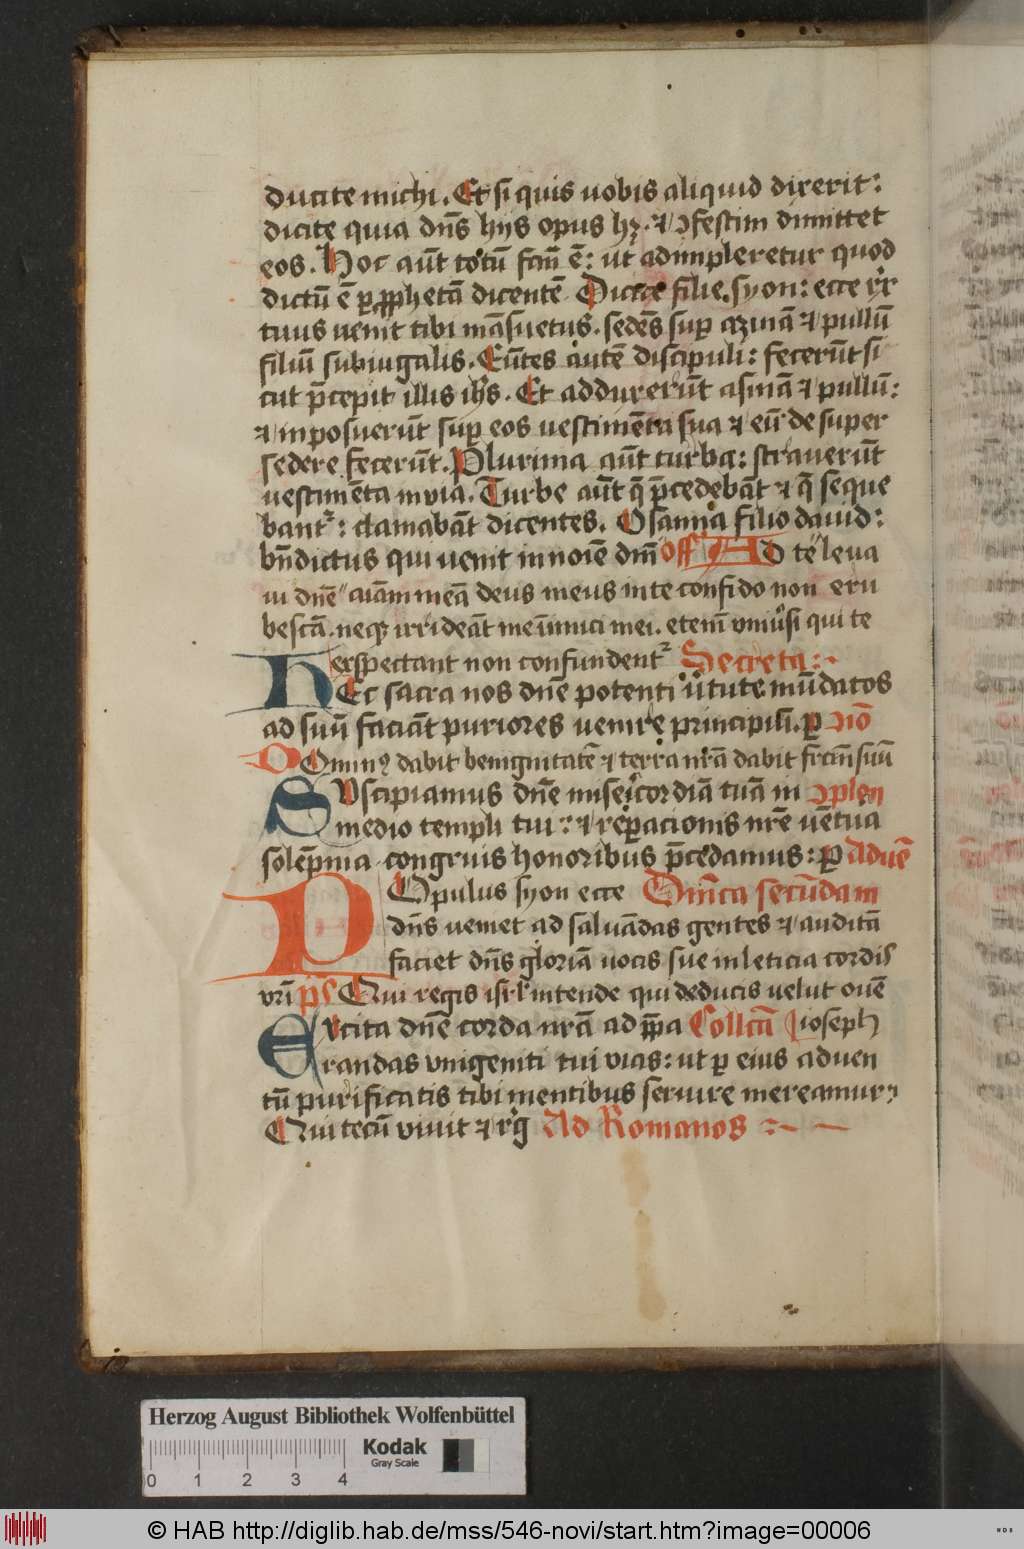 ducite michi. Et si quis uobis aliquid dixerit:
dicite quia dn̄s hijs opus hꝫ. ⁊ ↄfestim dimittet
eos. Hoc aūt totū fcm̄ ē: ut adimpleretur quod
dictū ē ꝑ ꝓphetā dicentē Dicite filie syon: ecce rex
tuus uenit tibi māsuetus. sedēs suꝑ azinā ⁊ pullū
filiū subiugalis. Eūtes autē discipuli: fecerūt si
cut p̄cepit illis ihs̄. Et adduxerūt asinā ⁊ pullū:
⁊ inposuerūt suꝑ eos uestimēta sua ⁊ eū de super
sedere fecerūt. Plurima aūt turba: strauerūt
uestimēta in via. Turbe aūt q̄ p̄cedebāt ⁊ q̄ seque
bantᷣ: clamabāt dicentes. Osanna filio dauid:
bn̄dictus qui uenit in noīe dnī off Ad te leua
ui dnē aīam meā deus meus in te confido non eru
bescā. neqꝫ irrideāt me inimici mei. etenī vniūsi qui te
expectant non confundentᷣ Secreta:
Hec sacra nos dnē potenti ūtute mūdatos
ad suū faciāt puriores uenire principiū. ꝑ ↄiō
Dominꝰ dabit benignitatē ⁊ terra nr̄a dabit frctm̄ suū
Suscipiamus dnē misericordiā tuā in ↄplen
medio templi tui: ⁊ reꝑacionis nr̄e uētua
solēpnia congruis honoribus p̄cedamus: ꝑ Aduē
Populus syon ecce Dnīca secūdam
dn̄s ueniet ad saluādas gentes ⁊ auditā
faciet dn̄s gloriā uocis sue in leticia cordis
vrī ps Qui regis isrl̄ intende qui deducis velut ouē
Excita dnē corda nr̄a ad ꝑpa Collcā ioseph
randas vnigeniti tui vias: ut ꝑ eius aduen
tū purificatis tibi mentibus seruire mereamur
Qui tecū viuit ⁊ rḡ Ad Romanos
Herzog August Bibliothek Wolfenbüttel
Kodak
Gray Scale
0 1 2 3 4
© HAB http://diglib.hab.de/mss/546-novi/start.htm?image=00006